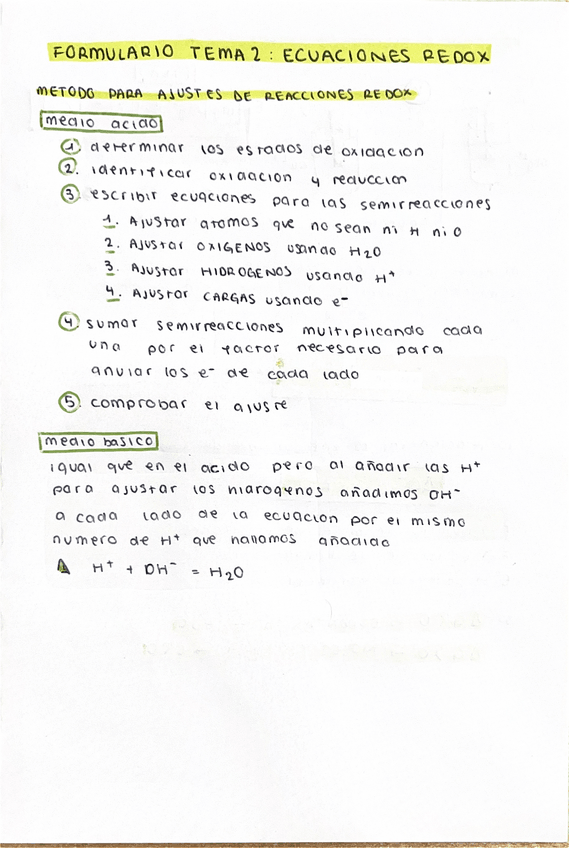 FORMULARIO TEMA 2: ECUACIONES REDOX
METODO PARA AJUSTES DE REACCIONES REDOX
medio acido
1. determinar los estados de oxidacion
2. identificar oxidacion y reduccion
3 escribir ecuaciones para las semirreacciones
1. Ajustar atomos que no sean ni H ni O
2. Ajustar OXIGENOS usando H₂O
3. Ajustar HIDROGENOS usando H⁺
4. Ajustar CARGAS usando e⁻
4 sumar semirreacciones multiplicando cada
una por el factor necesario para
anular los e⁻ de cada lado
5. comprobar el ajuste
medio basico
igual que en el acido pero al añadir las H⁺
para ajustar los hidrogenos añadimos OH⁻
a cada lado de la ecuacion por el mismo
numero de H⁺ que hallamos añadido
H⁺ + OH⁻ = H₂O